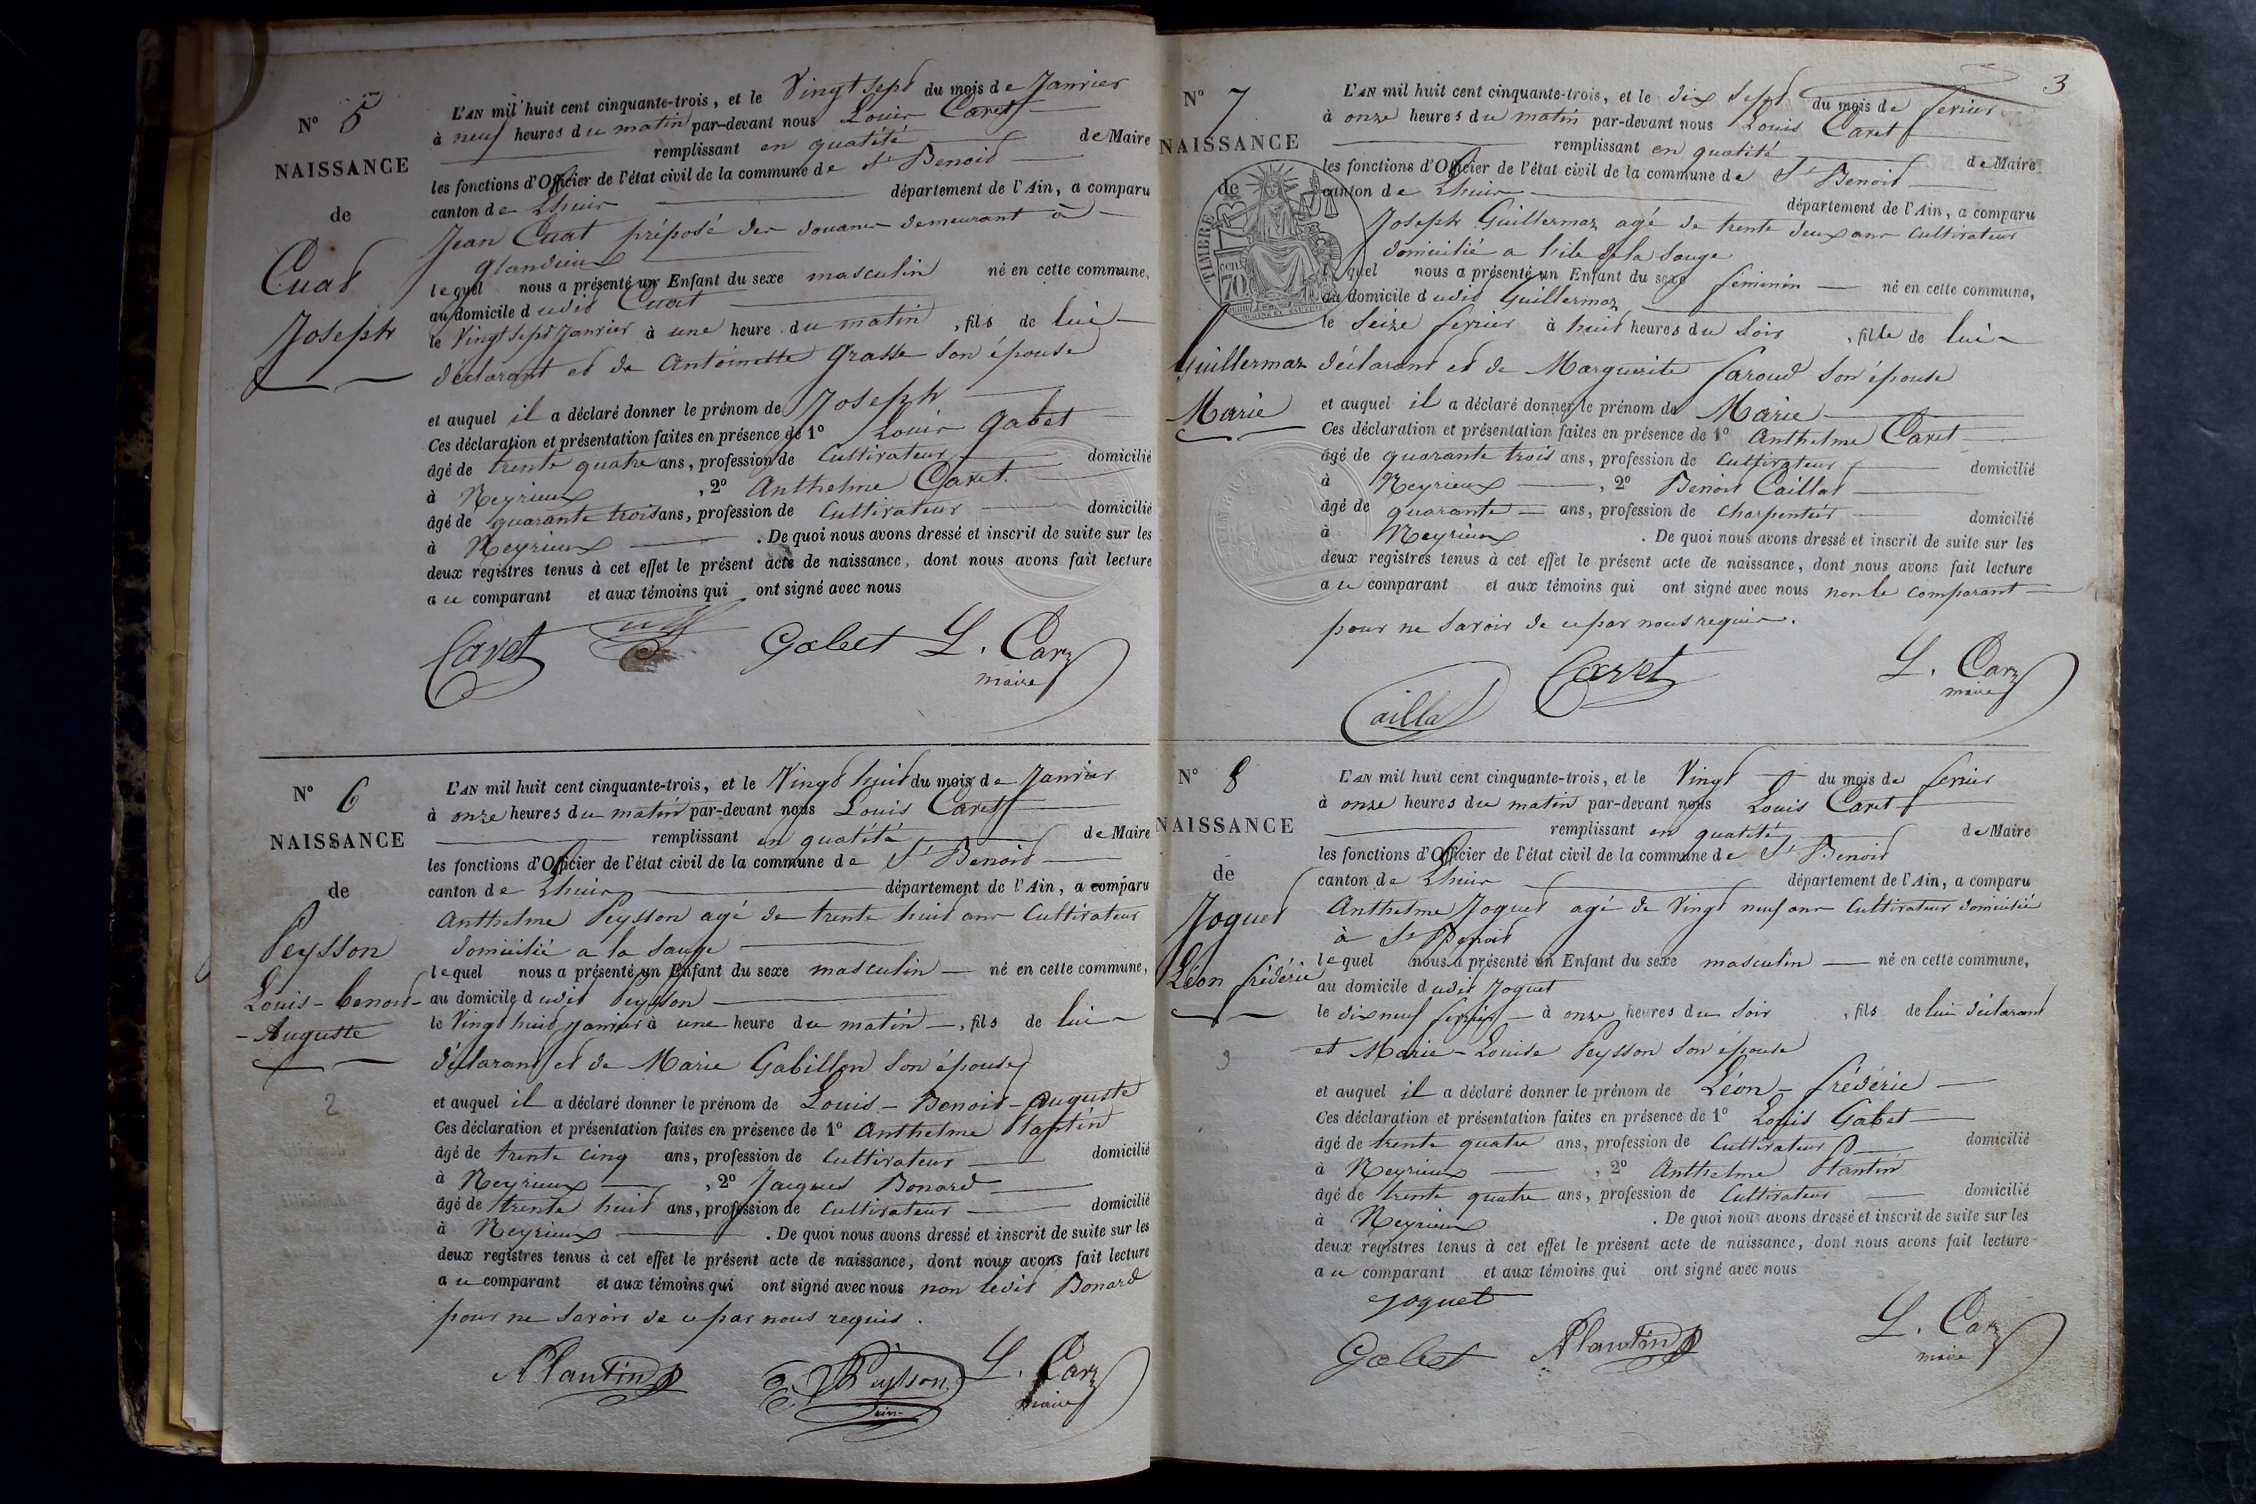 N° 5
NAISSANCE
de
Cuat
Joseph
L'AN mil huit cent cinquante-trois, et le Vingt sept du mois de Janvier
à neuf heures du matin par-devant nous Louis Caret
remplissant en qualité de Maire
les fonctions d'Officier de l'état civil de la commune de St Benoit
canton de Lhuis département de l'Ain, a comparu
Jean Cuat préposé des douanes demeurant à
Glandieux
lequel nous a présenté un Enfant du sexe masculin né en cette commune,
au domicile dudit Cuat
le Vingt sept Janvier à une heure du matin, fils de lui
déclarant et de Antoinette Grasse son épouse
et auquel il a déclaré donner le prénom de Joseph
Ces déclaration et présentation faites en présence de 1° Louis Gabet
âgé de trente quatre ans, profession de Cultivateur domicilié
à Neyrieux, 2° Anthelme Caret
âgé de quarante trois ans, profession de Cultivateur domicilié
à Neyrieux. De quoi nous avons dressé et inscrit de suite sur les
deux registres tenus à cet effet le présent acte de naissance, dont nous avons fait lecture
au comparant et aux témoins qui ont signé avec nous
Caret Gabet L. Caret
maire
N° 6
NAISSANCE
de
Peysson
Louis-Benoit-
-Auguste
2
L'AN mil huit cent cinquante-trois, et le Vingt huit du mois de Janvier
à onze heures du matin par-devant nous Louis Caret
remplissant en qualité de Maire
les fonctions d'Officier de l'état civil de la commune de St Benoit
canton de Lhuis département de l'Ain, a comparu
Anthelme Peysson agé de trente huit ans Cultivateur
domicilié a la Sauge
lequel nous a présenté un Enfant du sexe masculin né en cette commune,
au domicile dudit Peysson
le Vingt huit Janvier à une heure du matin, fils de lui
déclarant et de Marie Gabillon son épouse
et auquel il a déclaré donner le prénom de Louis-Benoit-Auguste
Ces déclaration et présentation faites en présence de 1° Anthelme Plantin
âgé de trente cinq ans, profession de Cultivateur domicilié
à Neyrieux, 2° Jacques Bonard
âgé de trente huit ans, profession de Cultivateur domicilié
à Neyrieux. De quoi nous avons dressé et inscrit de suite sur les
deux registres tenus à cet effet le présent acte de naissance, dont nous avons fait lecture
au comparant et aux témoins qui ont signé avec nous non ledit Bonard
pour ne savoir de ce par nous requis.
Plantin Peysson L. Caret
maire
3
N° 7
NAISSANCE
de
TIMBRE
70
Guillermaz
Marie
L'AN mil huit cent cinquante-trois, et le dix sept du mois de fevrier
à onze heures du matin par-devant nous Louis Caret
remplissant en qualité de Maire
les fonctions d'Officier de l'état civil de la commune de St Benoit
canton de Lhuis département de l'Ain, a comparu
Joseph Guillermaz agé de trente deux ans Cultivateur
domicilié a l'ile de la Sauge
lequel nous a présenté un Enfant du sexe féminin né en cette commune,
au domicile dudit Guillermaz
le Seize fevrier à huit heures du Soir, fille de lui
déclarant et de Marguerite Faroud son épouse
et auquel il a déclaré donner le prénom de Marie
Ces déclaration et présentation faites en présence de 1° Anthelme Caret
âgé de quarante trois ans, profession de Cultivateur domicilié
à Neyrieux, 2° Benoit Caillat
âgé de quarante ans, profession de Charpentier domicilié
à Neyrieux. De quoi nous avons dressé et inscrit de suite sur les
deux registres tenus à cet effet le présent acte de naissance, dont nous avons fait lecture
au comparant et aux témoins qui ont signé avec nous non le comparant
pour ne savoir de ce par nous requis.
Caillat Caret L. Caret
maire
N° 8
NAISSANCE
de
Joguet
Léon frédéric
3
L'AN mil huit cent cinquante-trois, et le Vingt du mois de fevrier
à onze heures du matin par-devant nous Louis Caret
remplissant en qualité de Maire
les fonctions d'Officier de l'état civil de la commune de St Benoit
canton de Lhuis département de l'Ain, a comparu
Anthelme Joguet agé de Vingt neuf ans Cultivateur domicilié
à St Benoit
lequel nous a présenté un Enfant du sexe masculin né en cette commune,
au domicile dudit Joguet
le dix neuf fevrier à onze heures du Soir, fils de lui déclarant
et Marie-Louise Peysson son épouse
et auquel il a déclaré donner le prénom de Léon-frédéric
Ces déclaration et présentation faites en présence de 1° Louis Gabet
âgé de trente quatre ans, profession de Cultivateur domicilié
à Neyrieux, 2° Anthelme Plantin
âgé de trente quatre ans, profession de Cultivateur domicilié
à Neyrieux. De quoi nous avons dressé et inscrit de suite sur les
deux registres tenus à cet effet le présent acte de naissance, dont nous avons fait lecture
au comparant et aux témoins qui ont signé avec nous
Joguet
Gabet Plantin L. Caret
maire